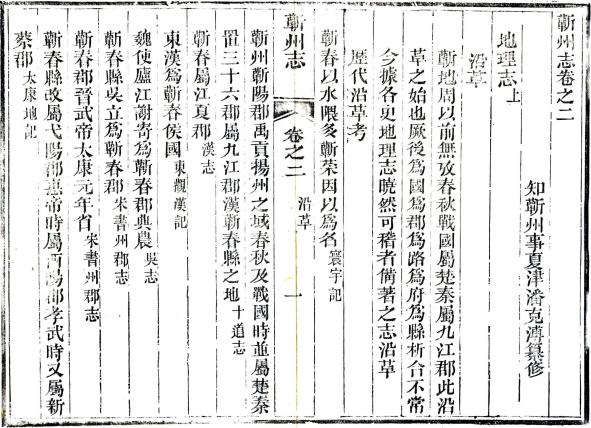 蘄州志卷之二
知蘄州事夏津潘克溥纂修
地理志上
沿革
蘄地周以前無攷春秋戰國屬楚秦屬九江郡此沿
革之始也厥後為國為郡為路為府為縣析合不常
今據各史地理志曉然可稽者僃著之志沿革
歷代沿革考
蘄春以水隈多蘄菜因以為名寰宇記
蘄州志
卷之二
沿革
一
蘄州蘄陽郡禹貢揚州之域春秋及戰國時並屬楚秦
置三十六郡屬九江郡漢蘄春縣之地十道志
蘄春屬江夏郡漢志
東漢為蘄春侯國東觀漢記
魏使廬江謝奇為蘄春郡典農吳志
蘄春縣吳立為蘄春郡宋書州郡志
蘄春郡晉武帝太康元年省宋書州郡志
蘄春縣改屬弋陽郡惠帝時屬西陽郡孝武時又屬新
蔡郡太康地記